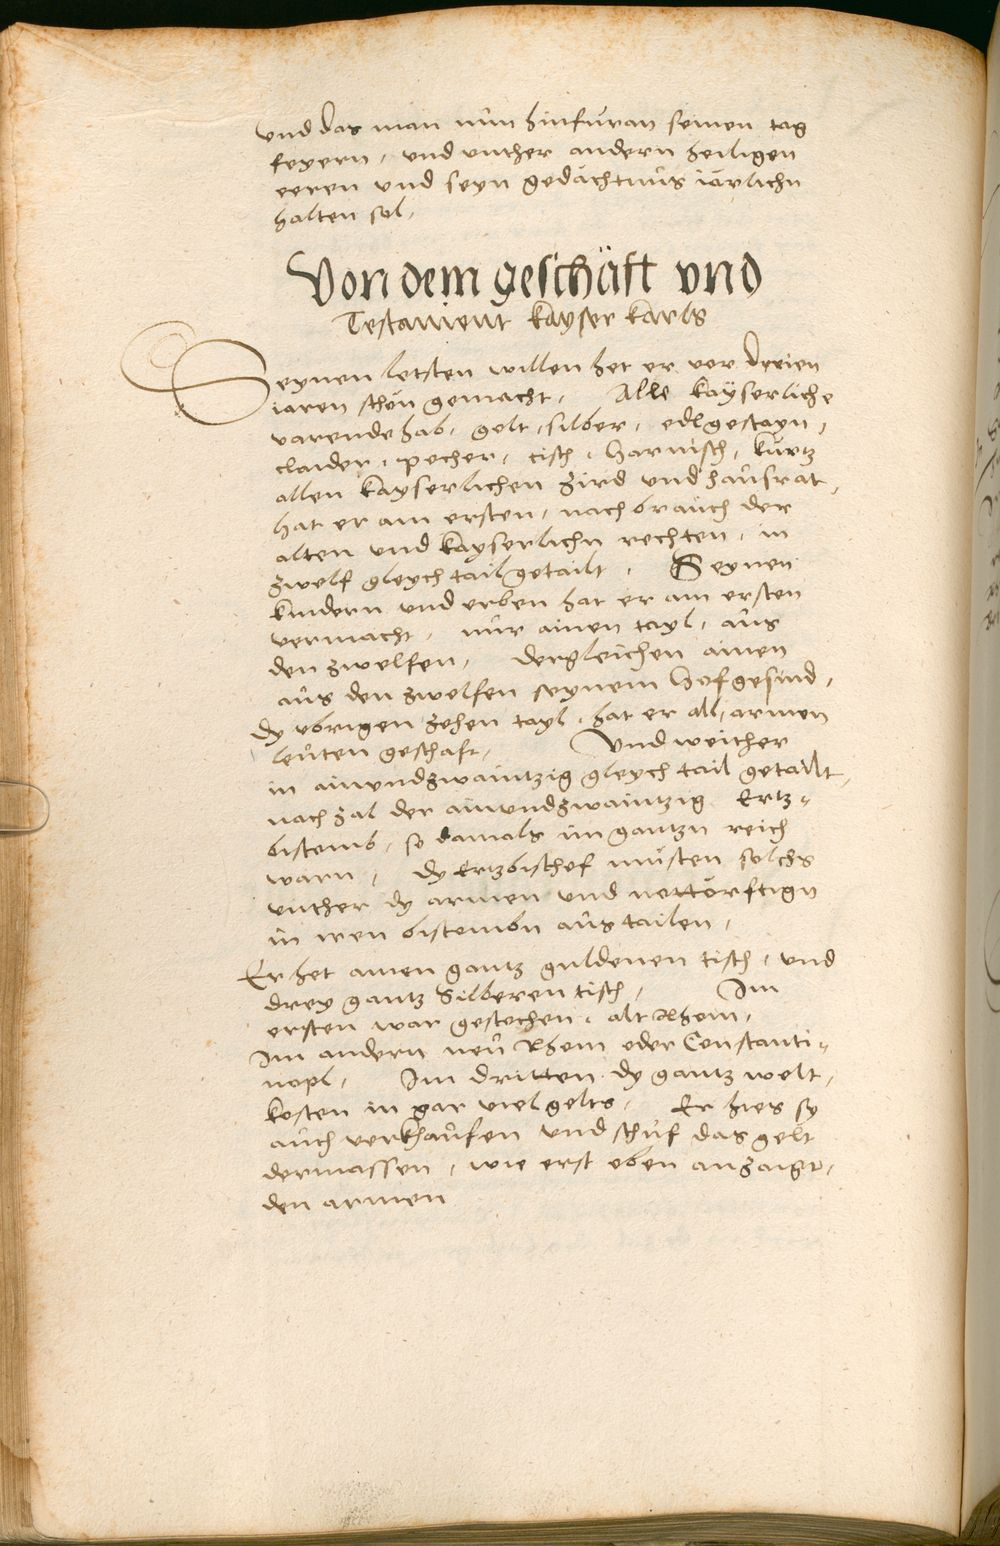 vnd das man nůn hinfuran seinen tag
feyern, vnd vnther andern heiligen
eeren vnd seyn gedächtnůs iärlichn
halten sol,
Von dem geschäft vnd
Testament kayser karls
Seynen letsten willen het er vor dreien
iaren schon gemacht, Alle kaÿserliche
varende hab, gelt, silber, edlgestayn,
claider, pecher, tisch, Harnisch, kurtz
allen kayserlichen zird vnd haůsrat,
hat er am ersten, nach braůch der
alten vnd kayserlichn rechten, in
zwelf gleych tail getailt, Seynen
kindern vnd erben hat er am ersten
vermacht, nůr ainen tayl, aůs
den zwelfen, dergleichen ainen
aůs den zwelfen seynem Hofgesind,
dy vbrigen zehen tayl, hat er all, armen
leůten geschaft, Vnd weither
in ainundzwaintzig gleych tail getailt,
nach zal der ainundzwaintzig Ertz-
bistomb, so damals im gantzn reich
warn, dy Ertzbischof můsten solchs
vnther dy armen vnd nottörftign
in iren bistombn aůs tailen,
Er het ainen gantz guldenen tisch, vnd
drey gantz Silberen tisch, Im
ersten war gestochen, alt Rhom,
Im andern neů Rhom oder Constanti-
nopl, Im dritten dy gantz welt,
kosten in gar viel gelts, Er hies sy
aůch verkhaůfen vnd schůf das gelt
dermassen, wie erst oben anzaigt,
den armen